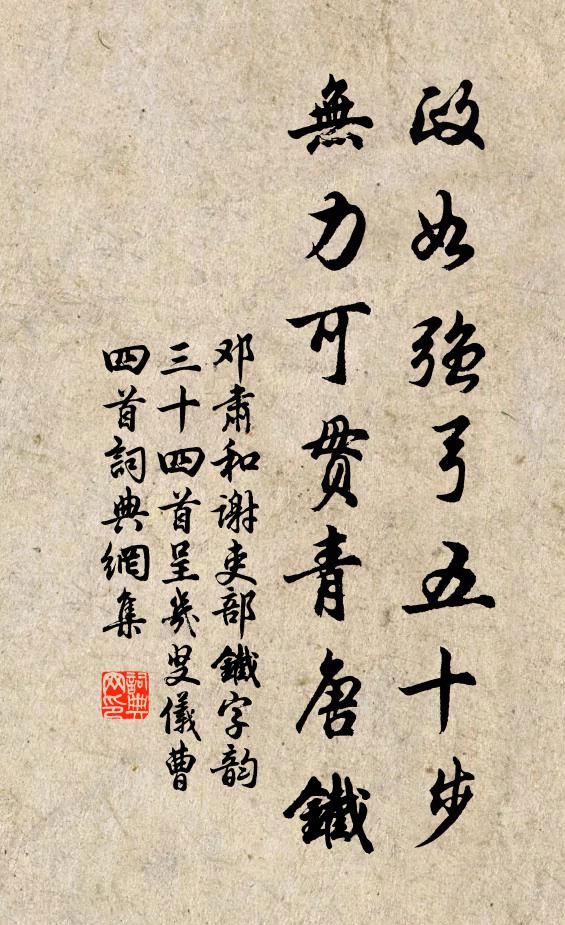 政如強弓五十步
無力可貫青唐鐵
邓肅和谢吏部鐵字韵
三十四首呈幾叟儀曹
四首詞典網集
詞典网印